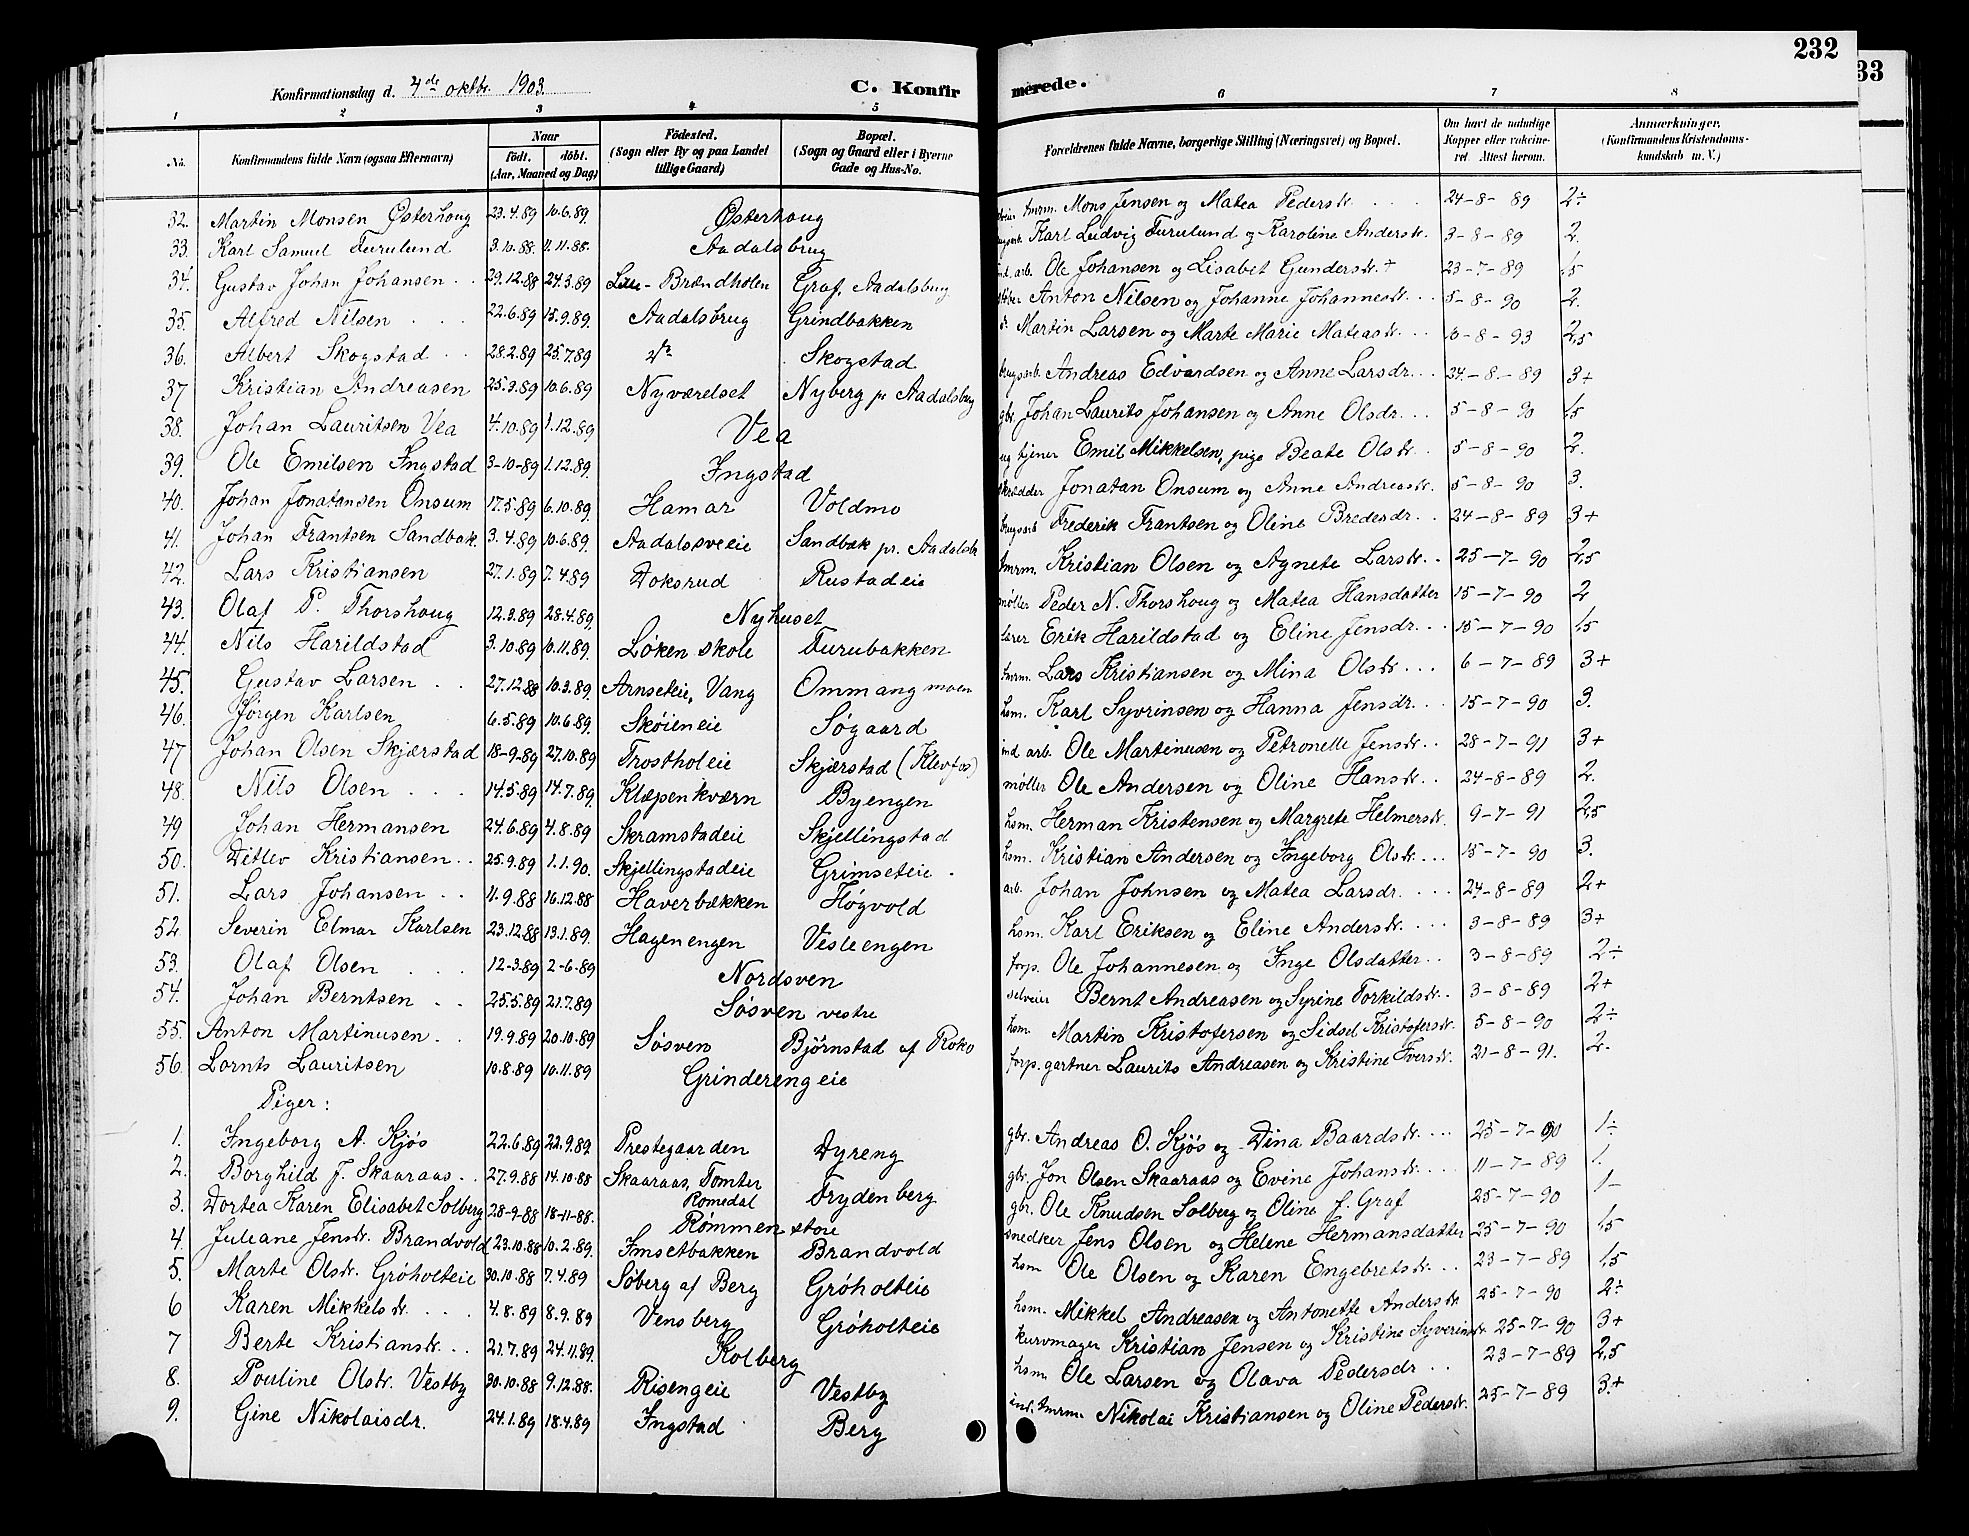 232
33
Konfirmationsdag d. 4de oktbr. 1903. C. Konfirmerede.
1 2 3 4 5 6 7 8
No. Konfirmandens fulde Navn (ogsaa Efternavn) Naar født. døbt. (Aar, Maaned og Dag) Fødested. (Sogn eller By og paa Landet tillige Gaard) Bopæl. (Sogn og Gaard eller i Byerne Gade og Hus-No. Forældrenes fulde Navne, borgerlige Stilling (Næringsvei) og Bopæl. Om havt de naturlige Kopper eller vaccineret. Attest herom. Anmærkninger. (Konfirmandens Kristendomskundskab m. V.)
32. Martin Monsen Østerhoug 23.4.89 10.6.89. Østerhoug tmrm. Mons Jensen og Matea Pedersdr. 24-8-89 2÷
33. Karl Samuel Furulund 3.10.88. 11.11.88. Aadalsbrug Karl Ludvig Furulund og Karoline Andersdr. 3-8-89 2.
34. Gustav Johan Johansen 29.12.88 24.3.89 Brændholen Graf, Aadalsbrug ind. arb. Ole Johansen og Lisabet Gundersdr. + 23-7-89 1,5
35. Alfred Nilsen 22.6.89 15.9.89. Aadalsbrug Grindbakken Anton Nilsen og Johanne Johannesdr. 5-8-90 2.
36. Albert Skogstad 28.2.89 25.7.89 do Skogstad Martin Larsen og Marte Marie Mateasdr. 10-8-93 2,5
37 Kristian Andreasen 25.3.89 10.6.89 Nyværelset Nyberg pr Aadalsbrug brugsarb. Andreas Edvardsen og Anne Larsdr. 24-8-89 3+
38. Johan Lauritsen Vea 4.10.89 1.12.89 Vea gbr. Johan Laurits Johansen og Anne Olsdr. 5-8-90 1,5
39. Ole Emilsen Ingstad 3-10-89 1.12.89. Ingstad ug tjener Emil Mikkelsen, pige Beate Olsdr. 5-8-90 2.
40. Johan Jonatansen Onsum 17.5.89 6.10.89. Hamar Voldmo skrædder Jonatan Onsum og Anne Andreasdr. 5-8-90 3.
41. Johan Frantsen Sandbak. 3.4.89 10.6.89 Aadalssveeie Sandbæk pr. Aadalsbr brugsarb Frederik Frantsen og Oline Bredesdr. 24-8-89 3+
42. Lars Kristiansen 27.1.89 7.4.89 Doksrud Rustadeie tmrm. Kristian Olsen og Agnete Larsdr. 25-7-90 2,5
43. Olaf P. Thorshoug 12.3.89 28.4.89. Nyhuset møller Peder N. Thorshoug og Matea Hansdatter 15-7-90 2
44. Nils Harildstad 3.10.89 10.11.89. Løken skole Furubakken lærer Erik Harildstad og Eline Jensdr. 15-7-90 1,5
45. Gustav Larsen 27.12.88 10.3.89. Arnseteie, Vang Ommang moen tmrm. Lars Kristiansen og Mina Olsdr. 6-7-89 3+
46. Jørgen Karlsen 6.5.89 10.6.89. Skøieneie Søgaard hsm. Karl Syvrinsen og Hanna Jensdr. 15-7-90 3.
47 Johan Olsen Skjærstad 18-9-89 27.10.89 Trostholeie Skjærstad (Klevfos) ind arb. Ole Martinusen og Petronelle Jensdr. 28-7-91 3+
48. Nils Olsen 14.5.89 14.7.89. Klæpenkværn Byengen møller Ole Andersen og Oline Hansdr. 24-8-89 2.
49 Johan Hermansen 24.6.89 4.8.89 Skramstadeie Skjellingstad hsm. Herman Kristensen og Margrete Helmersdr. 9-7-91 2,5
50. Ditlev Kristiansen 25.9.89 1.1.90. Skjellingstadeie Grimseteie hsm. Kristian Andersen og Ingeborg Olsdr. 15-7-90 3.
51. Lars Johansen 11.9.88 16.12.88 Haverbækken Høgvold arb. Johan Johnsen og Matea Larsdr. 24-8-89 2+
52 Severin Elmar Karlsen 23.12.88 13.1.89. Hagenengen Vesleengen hsm. Karl Eriksen og Eline Andersdr. 3-8-89 3+
53. Olaf Olsen 12-3.89 2-6.89 Nordsven forp. Ole Johannesen og Inge Olsdatter 3-8-89 2÷
54. Johan Berntsen 25.5.89 21.7.89 Søsven vestre selveier Bernt Andreasen og Syrine Torkildsdr. 3-8-89 2+
55. Anton Martinusen 19.9.89 20.10.89 Søsven Bjørnstad af Roko hsm. Martin Kristofersen og Sidsel Kristofersdr. 5-8-90 2÷
56. Lornts Lauritsen 10.8.89 10.11.89 Grinderengeie forp. gartner Laurits Andreasen og Kristine Iversdr. 21-8-91. 2.
Piger:
1. Ingeborg A. Kjøs 22.6.89 22.9.89 Prestegaarden Dyreng gbr. Andreas O. Kjøs og Dina Baardsdr. 25-7-90 1÷
2. Borghild J. Skaaraas 27.9.88 14.10.88 Skaaraas, Tomter Romedal Frydenberg gbr. Jon Olsen Skaaraas og Evine Johansdr. 11-7-89 1.
3. Dortea Karen Elisabet Solberg 28-9-88 18-11-88. Rømmen store gbr. Ole Knudsen Solberg og Oline f. Graf 25-7-90 1-
4. Juliane Jensdr. Brandvold 23.10.88 10.2.89. Imsetbakken Brandvold snedker Jens Olsen og Helene Hermansdatter 25-7-90 1,5
5. Marte Olsdr. Grøholteie 30.10.88 7.4.89 Søberg af Berg Grøholteie hsm Ole Olsen og Karen Engebretsdr. 23-7-89 1,5
6 Karen Mikkelsdr. 4.8.89 8.9.89 Vensberg Grøholteie hsm. Mikkel Andreasen og Antonette Andersdr. 25-7-90 2÷
7 Berte Kristiansdr. 21.7.89 24.11.89. Kolberg kurvmager Kristian Jensen og Kristine Syverinsdr. 25-7-90 3+
8. Pouline Olsdr. Vestby 30.10.88 9.12.88. Risengeie Vestby hsm. Ole Larsen og Olava Pedersdr 23-7-89 2,5
9. Gine Nikolaisdr. 24.1.89 18.4.89 Ingstad Berg ind. tmrm. Nikolai Kristiansen og Oline Pedersdr. 25-7-89 3.+